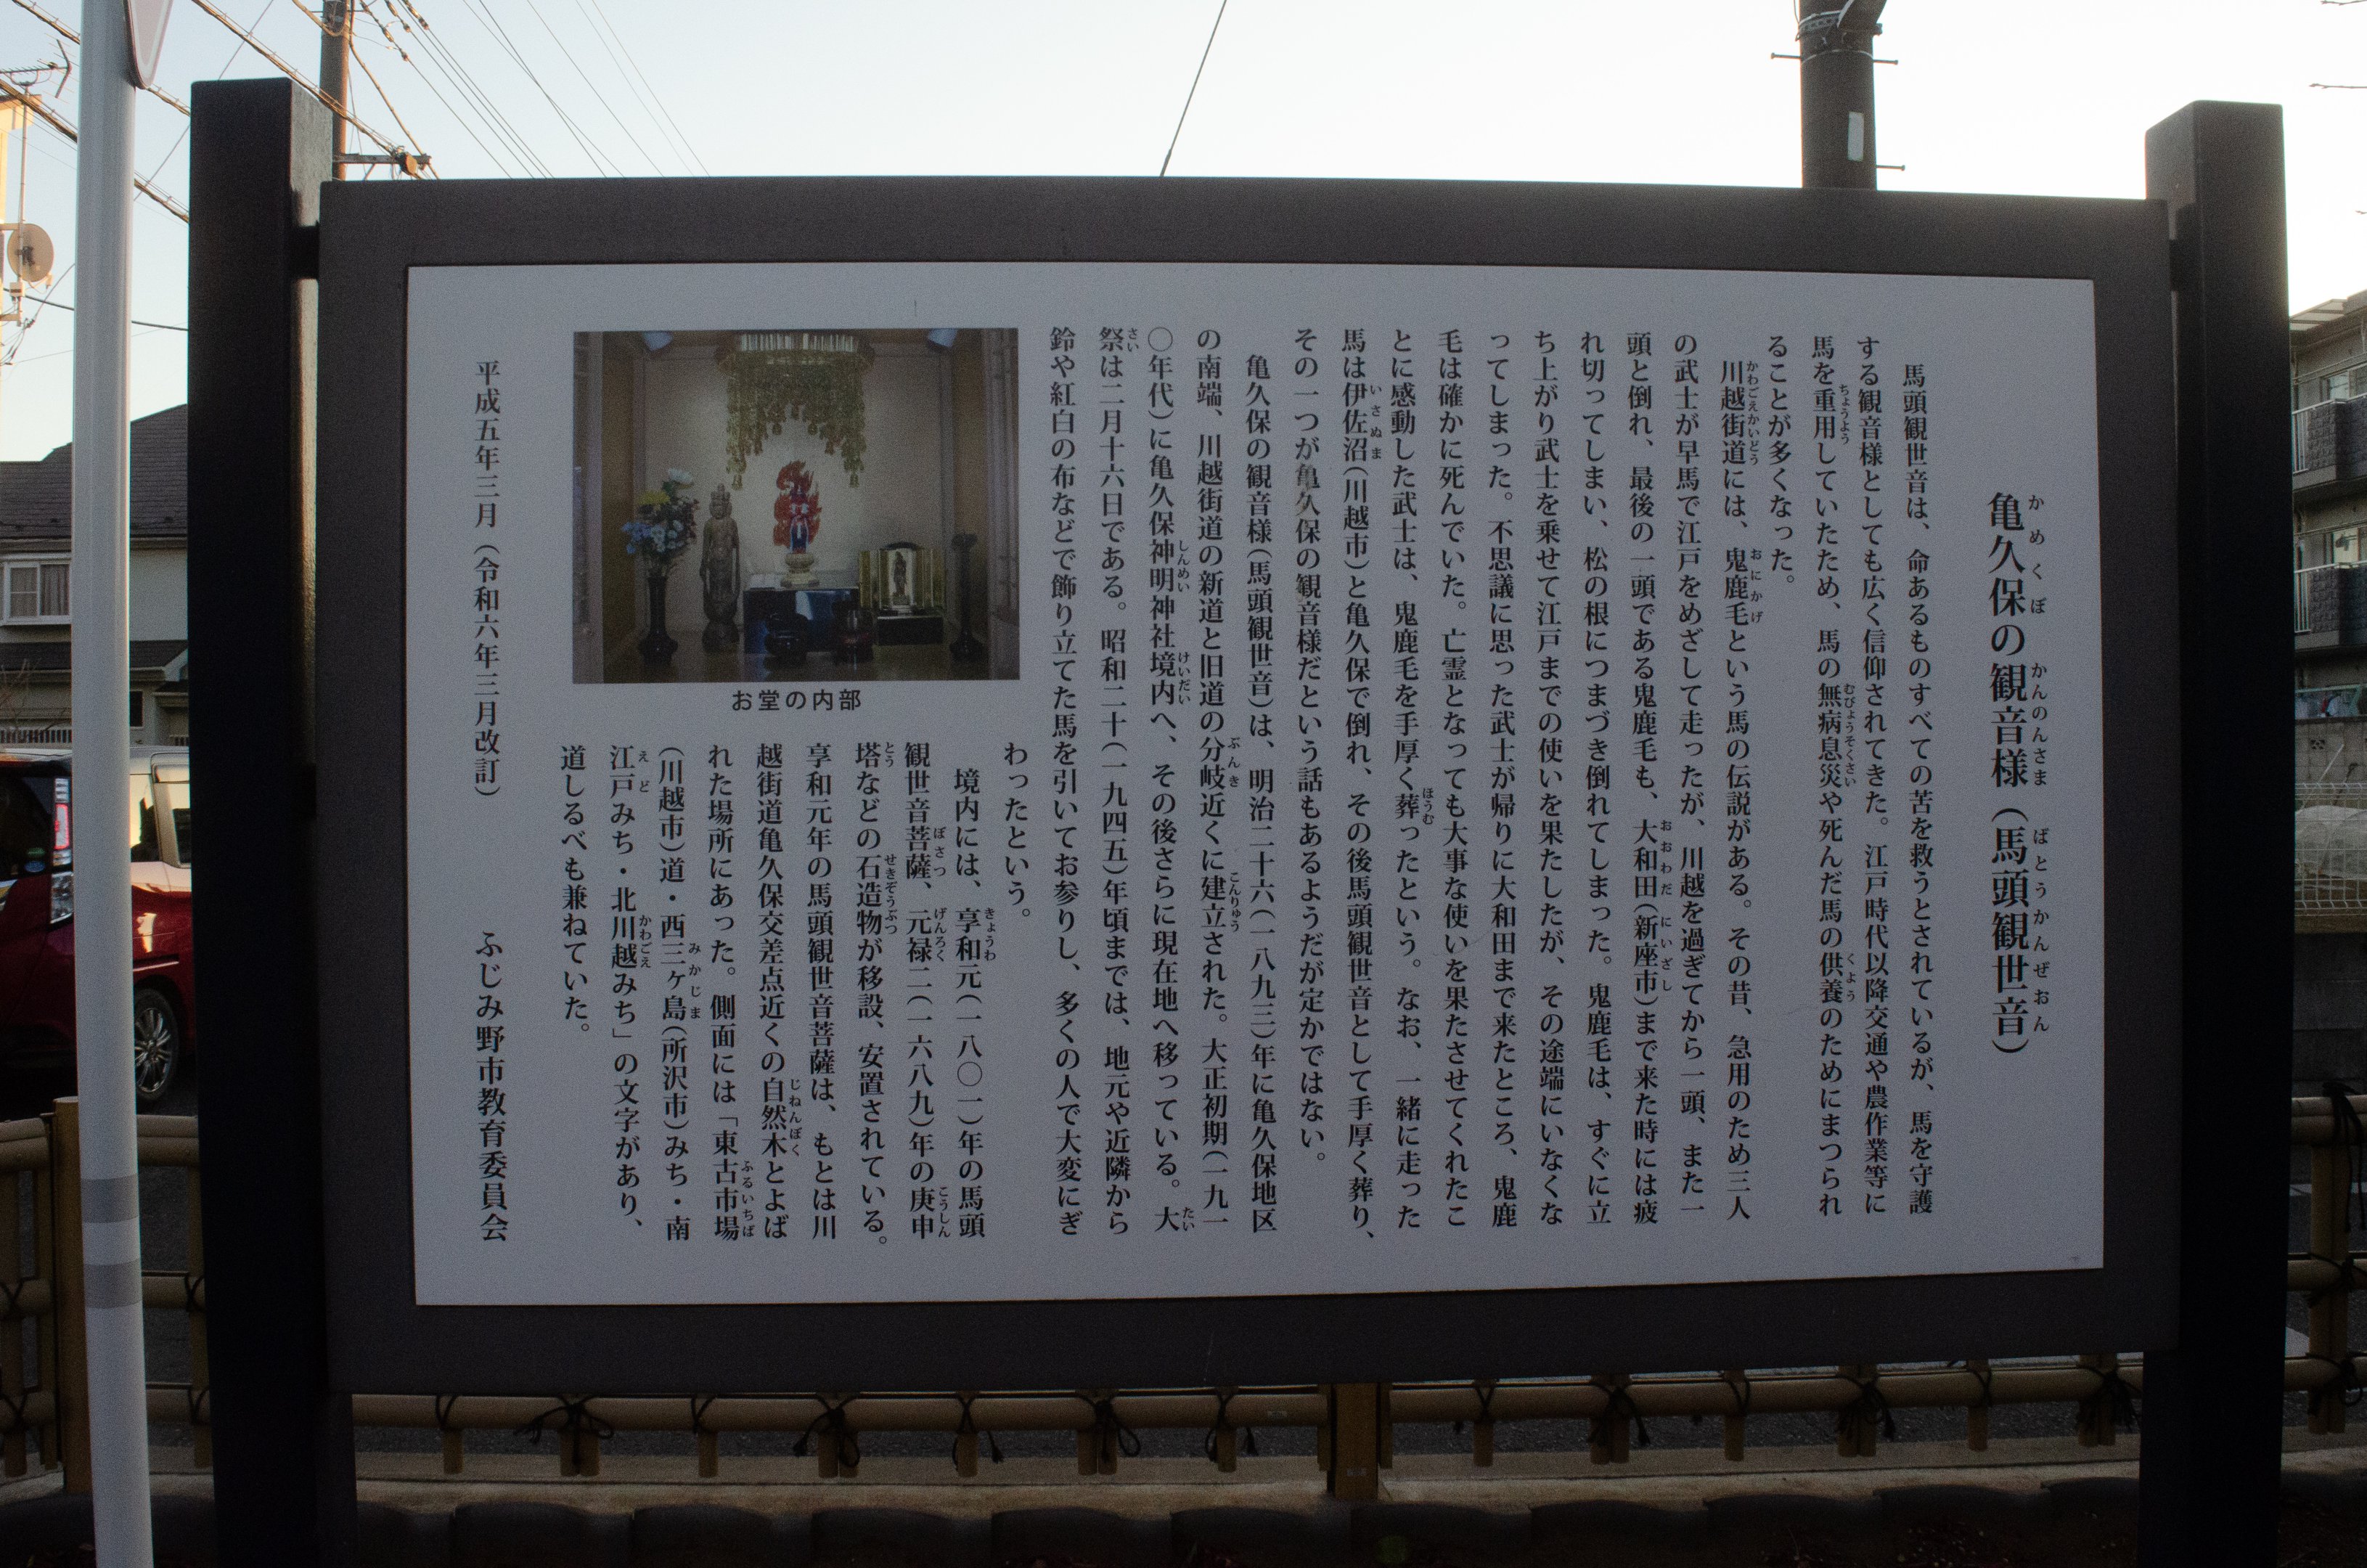 亀久保の観音様（馬頭観世音）
かめくぼ かんのんさま ばとうかんぜおん
馬頭観世音は、命あるものすべての苦を救うとされているが、馬を守護
する観音様としても広く信仰されてきた。江戸時代以降交通や農作業等に
馬を重用していたため、馬の無病息災や死んだ馬の供養のためにまつられ
ちょうよう むびょうそくさい くよう
ることが多くなった。
川越街道には、鬼鹿毛という馬の伝説がある。その昔、急用のため三人
かわごえかいどう おにかげ
の武士が早馬で江戸をめざして走ったが、川越を過ぎてから一頭、また一
頭と倒れ、最後の一頭である鬼鹿毛も、大和田（新座市）まで来た時には疲
おおわだ にいざし
れ切ってしまい、松の根につまづき倒れてしまった。鬼鹿毛は、すぐに立
ち上がり武士を乗せて江戸までの使いを果たしたが、その途端にいなくな
ってしまった。不思議に思った武士が帰りに大和田まで来たところ、鬼鹿
毛は確かに死んでいた。亡霊となっても大事な使いを果たさせてくれたこ
とに感動した武士は、鬼鹿毛を手厚く葬ったという。なお、一緒に走った
ほうむ
馬は伊佐沼（川越市）と亀久保で倒れ、その後馬頭観世音として手厚く葬り、
いさぬま
その一つが亀久保の観音様だという話もあるようだが定かではない。
亀久保の観音様（馬頭観世音）は、明治二十六（一八九三）年に亀久保地区
の南端、川越街道の新道と旧道の分岐近くに建立された。大正初期（一九一
ぶんき こんりゅう
〇年代）に亀久保神明神社境内へ、その後さらに現在地へ移っている。大
しんめい けいだい たい
祭は二月十六日である。昭和二十（一九四五）年頃までは、地元や近隣から
さい
鈴や紅白の布などで飾り立てた馬を引いてお参りし、多くの人で大変にぎ
わったという。
境内には、享和元（一八〇一）年の馬頭
きょうわ
観世音菩薩、元禄二（一六八九）年の庚申
ぼさつ げんろく こうしん
塔などの石造物が移設、安置されている。
とう せきぞうぶつ
享和元年の馬頭観世音菩薩は、もとは川
越街道亀久保交差点近くの自然木とよば
じねんぼく
れた場所にあった。側面には「東古市場
ふるいちば
（川越市）道・西三ヶ島（所沢市）みち・南
みかじま
江戸みち・北川越みち」の文字があり、
えど かわごえ
道しるべも兼ねていた。
お堂の内部
平成五年三月（令和六年三月改訂）
ふじみ野市教育委員会